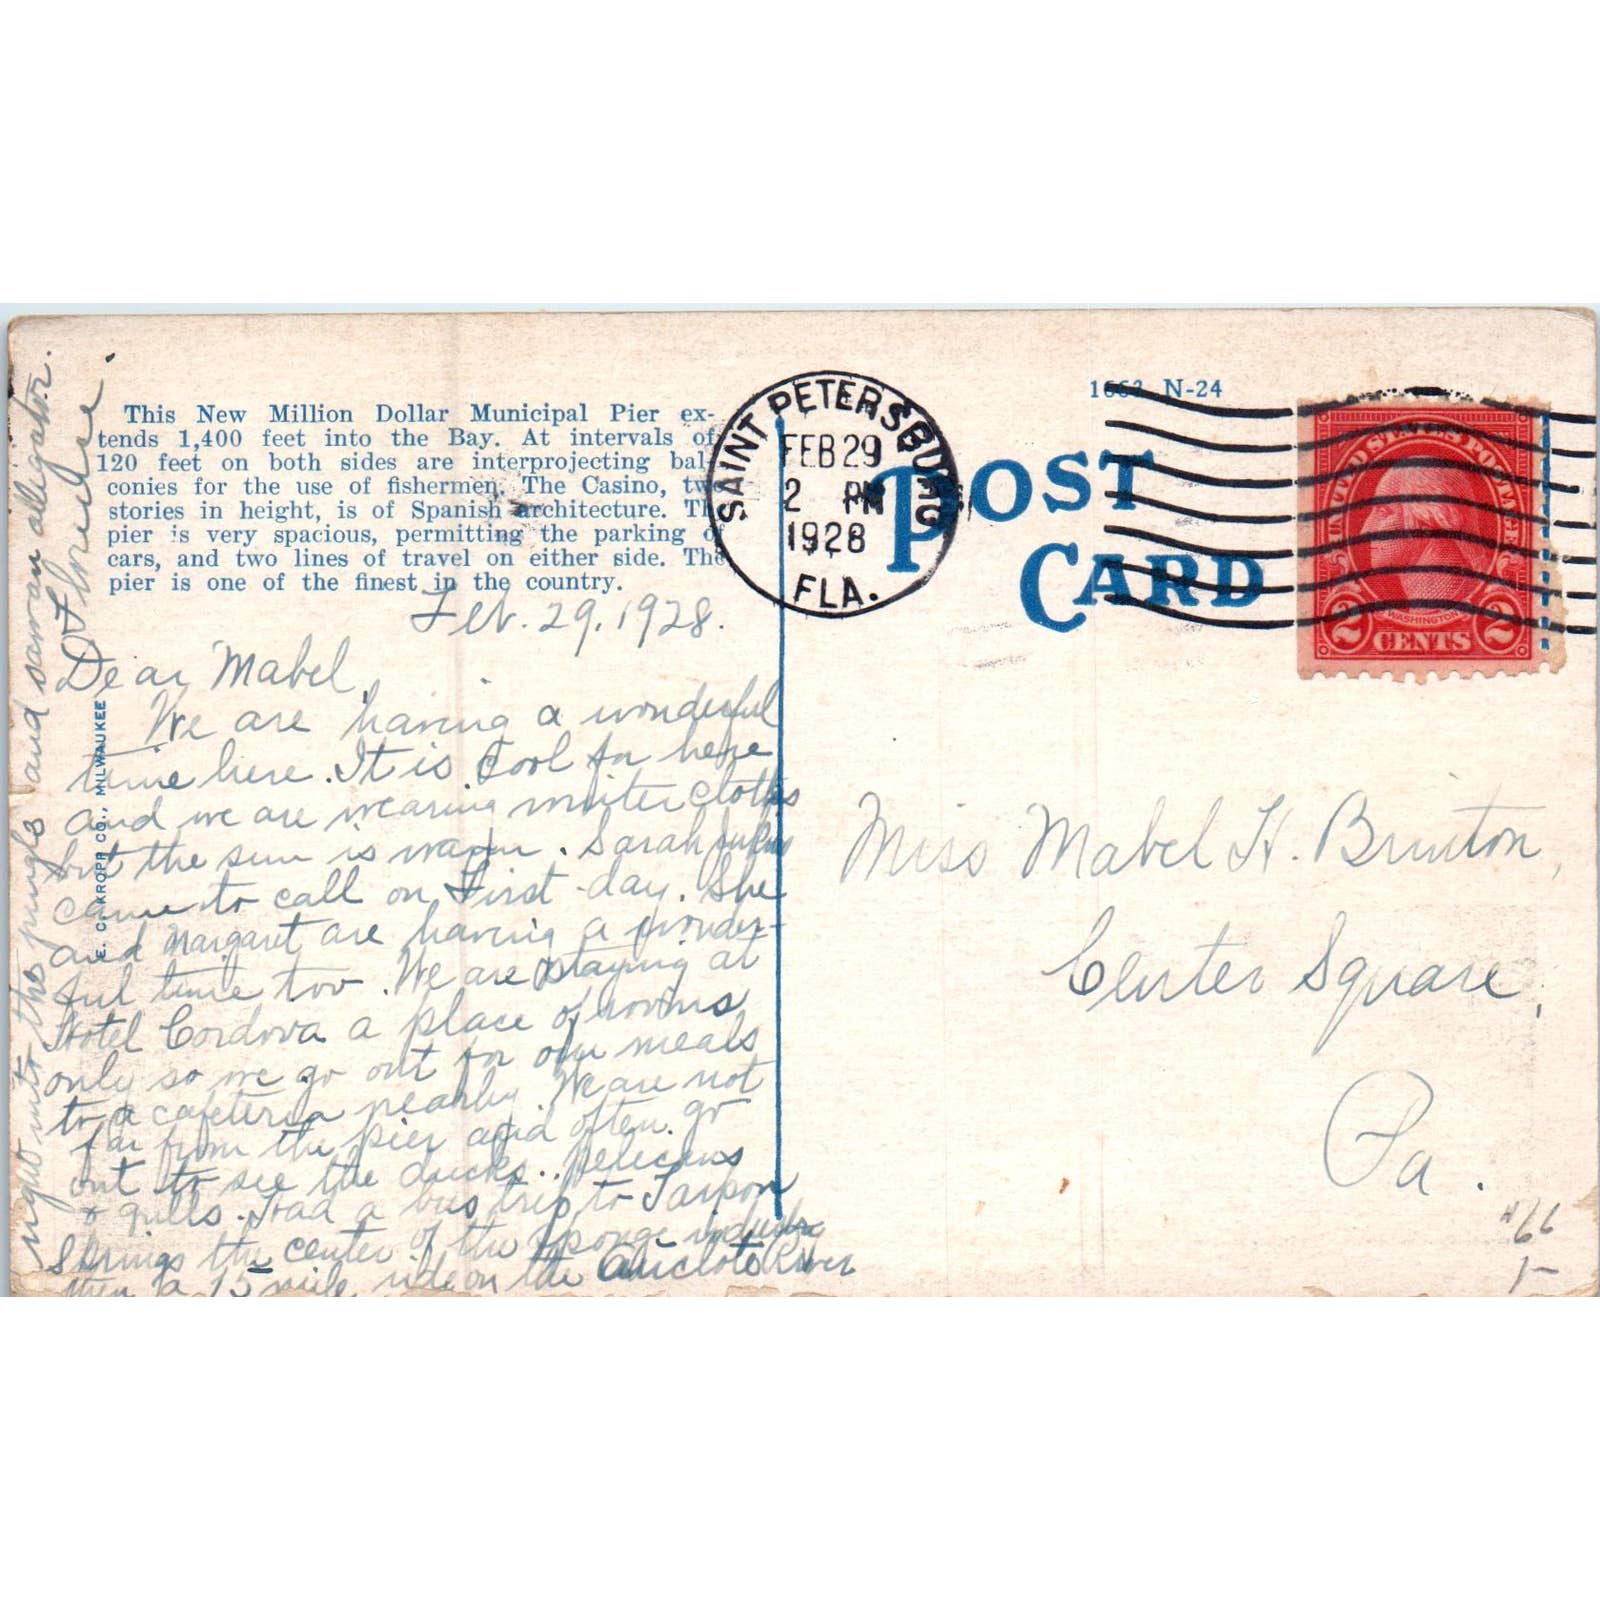 This New Million Dollar Municipal Pier ex-
tends 1,400 feet into the Bay. At intervals of
120 feet on both sides are interprojecting bal-
conies for the use of fishermen. The Casino, two
stories in height, is of Spanish architecture. The
pier is very spacious, permitting the parking of
cars, and two lines of travel on either side. The
pier is one of the finest in the country.
E. C. KROPP CO., MILWAUKEE
SAINT PETERSBURG
FEB 29
2 PM
1928
FLA.
N-24
POST
CARD
UNITED STATES POSTAGE
WASHINGTON
2 CENTS 2
Feb. 29, 1928.
Dear Mabel,
We are having a wonderful
time here. It is cool for here
and we are wearing winter clothes
but the sun is warm. Sarah
came to call on First-day. She
and Margaret are having a wonder-
ful time too. We are staying at
Hotel Cordova a place of rooms
only so we go out for our meals
to a cafeteria nearby. We are not
far from the pier and often go
out to see the ducks, pelicans
& gulls. Had a bus trip to Tarpon
Springs the center of the sponge industry
then a 15 mile ride on the Anclote River
right into the jungle and saw an alligator.
Florence.
Miss Mabel H. Brunton,
Center Square,
Pa.